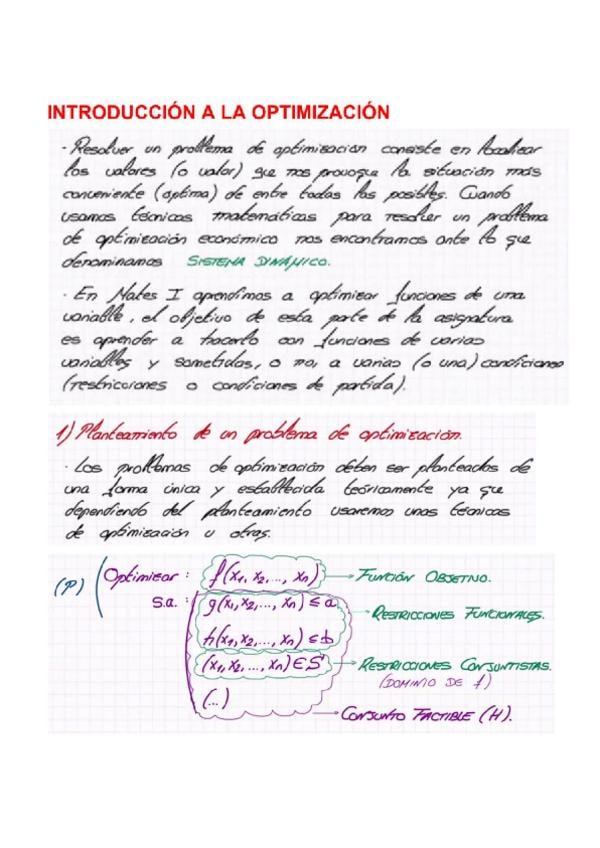 INTRODUCCIÓN A LA OPTIMIZACIÓN
· Resolver un problema de optimización consiste en localizar
los valores (o valor) que nos provoque la situación más
conveniente (óptima) de entre todas las posibles. Cuando
usamos técnicas matemáticas para resolver un problema
de optimización económico nos encontramos ante lo que
denominamos SISTEMA DINÁMICO.
· En Mates I aprendimos a optimizar funciones de una
variable, el objetivo de esta parte de la asignatura
es aprender a hacerlo con funciones de varias
variables y sometidas, o no, a varias (o una) condiciones
(restricciones o condiciones de partida).
1) Planteamiento de un problema de optimización.
· Los problemas de optimización deben ser planteados de
una forma única y establecida teóricamente ya que
dependiendo del planteamiento usaremos unas técnicas
de optimización u otras.
(P) Optimizar: f(x₁, x₂, ..., xₙ) → FUNCIÓN OBJETIVO.
S.a.: g(x₁, x₂, ..., xₙ) ≤ a → RESTRICCIONES FUNCIONALES.
h(x₁, x₂, ..., xₙ) ≤ b
(x₁, x₂, ..., xₙ) ∈ S → RESTRICCIONES CONJUNTISTAS.
(DOMINIO DE f)
(...)
→ CONJUNTO FACTIBLE (H).